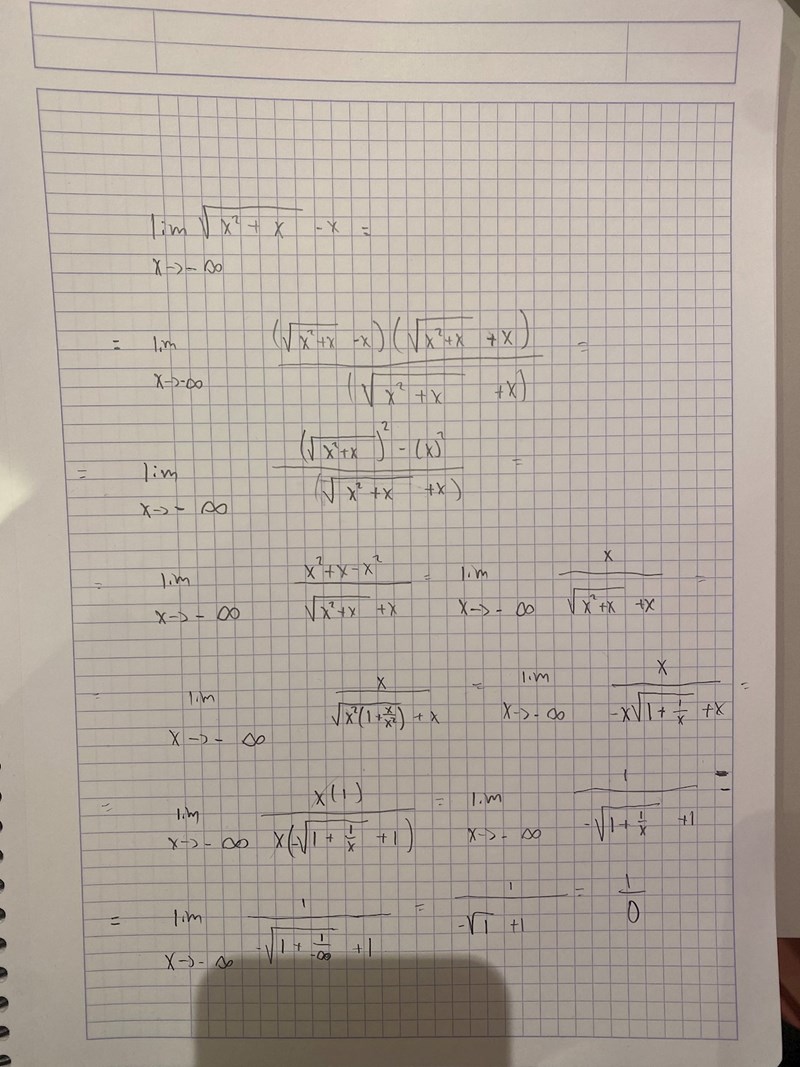 lim √(x² + x) - x =
x→-∞
= lim ((√(x²+x) - x)(√(x²+x) + x)) / (√(x²+x) + x) =
x→-∞
= lim ((√(x²+x))² - (x)²) / (√(x²+x) + x) =
x→-∞
= lim (x²+x-x²) / (√(x²+x) + x) = lim x / (√(x²+x) + x) =
x→-∞ x→-∞
= lim x / (√(x²(1+x/x²)) + x) = lim x / (-x√(1+1/x) + x) =
x→-∞ x→-∞
= lim x(1) / x(-√(1+1/x) + 1) = lim 1 / (-√(1+1/x) + 1) =
x→-∞ x→-∞
= lim 1 / (-√(1+1/-∞) + 1) = 1 / (-√1 + 1) = 1/0
x→-∞